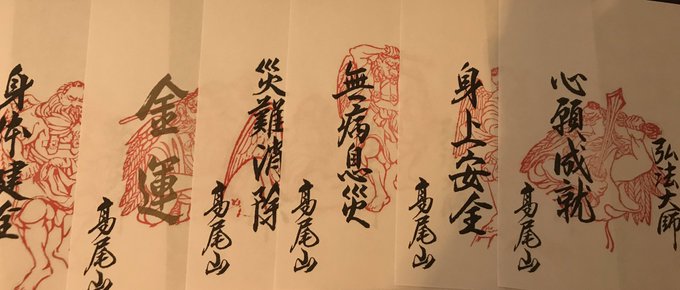 弘法大師
心願成就
高尾山
身上安全
高尾山
無病息災
高尾山
災難消除
高尾山
金運
高尾山
身体建全